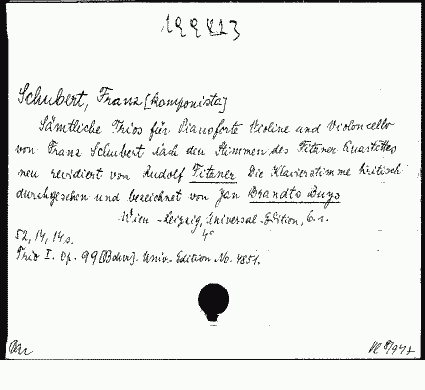 199823
Schubert, Franz [komponista]
Sämtliche Trios für Pianoforte Violine und Violoncello
von Franz Schubert nach den Stimmen des Fitzner Quartettes
neu revidiert von Rudolf Fitzner Die Klavierstimme kritisch
durchgesehen und bezeichnet von Jan Brandts Buys
Wien - Leipzig, Universal-Edition, b.r.
4°
52, 14, 14 s.
Trio I. Op. 99 (B dur). Univ.-Edition No. 4851.